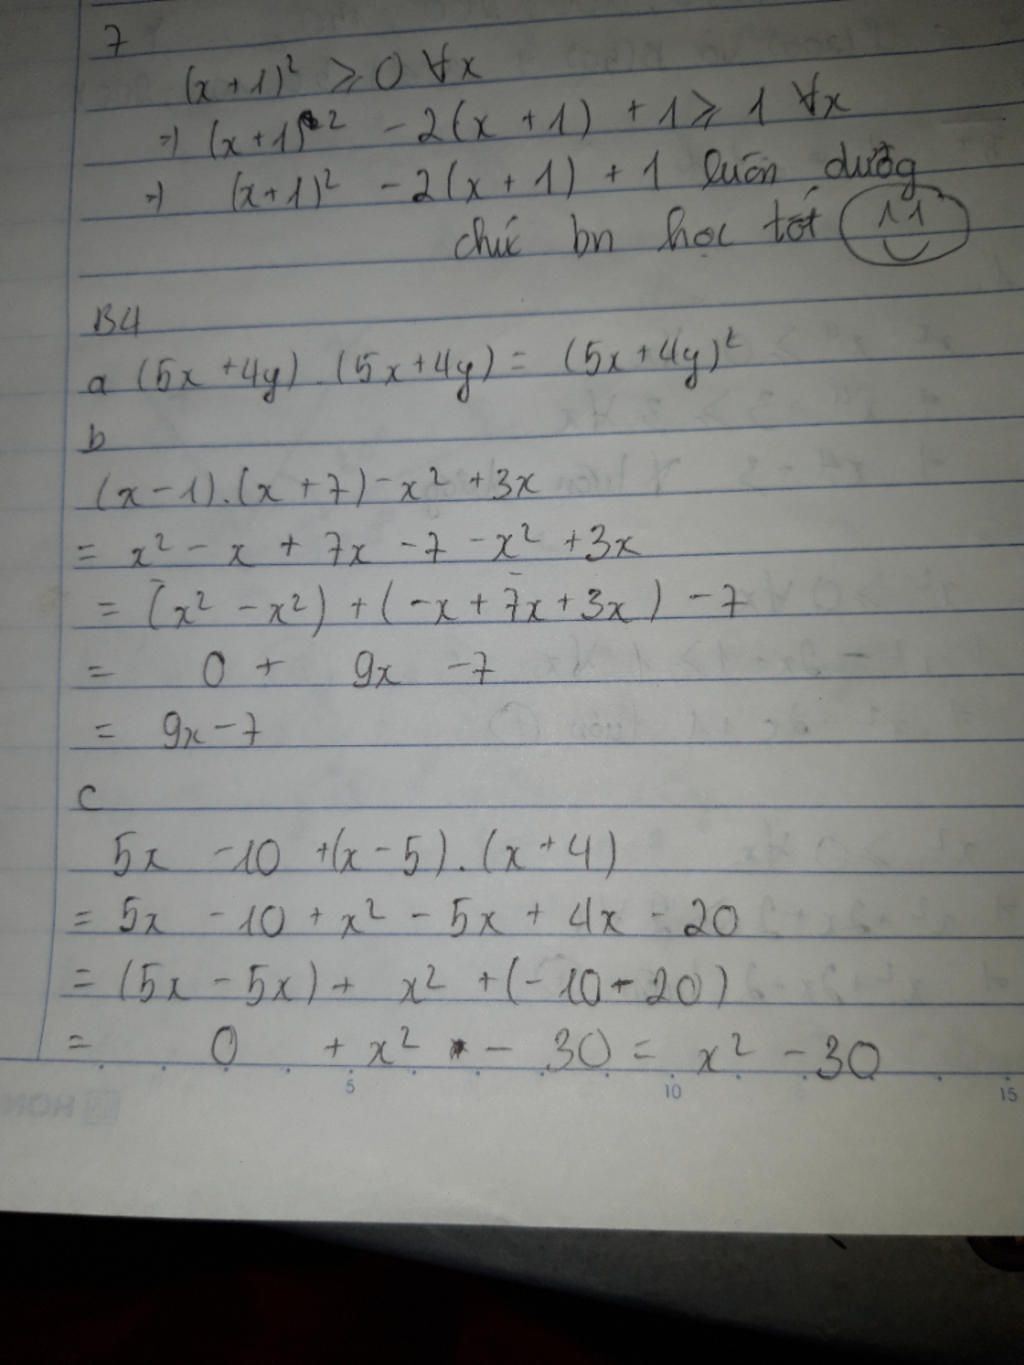 7
(x+1)² ⩾ 0 ∀x
⇒ (x+1)² - 2(x+1) + 1 ⩾ 1 ∀x
⇒ (x+1)² - 2(x+1) + 1 luôn dương
chúc bn học tốt
B4
a (5x+4y).(5x+4y) = (5x+4y)²
b
(x-1).(x+7)-x²+3x
= x² - x + 7x - 7 - x² + 3x
= (x² - x²) + (-x + 7x + 3x) - 7
= 0 + 9x - 7
= 9x - 7
c
5x - 10 + (x-5).(x+4)
= 5x - 10 + x² - 5x + 4x - 20
= (5x - 5x) + x² + (-10 - 20)
= 0 + x² - 30 = x² - 30
5 10 15